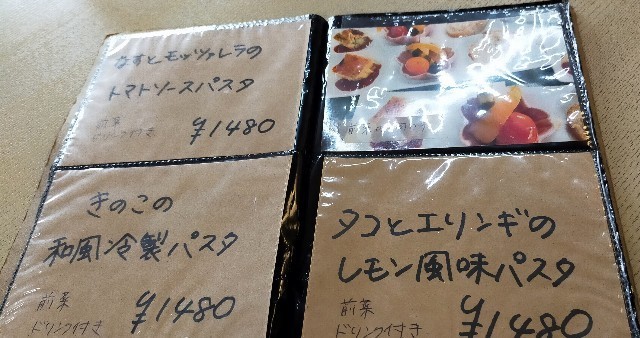 なすとモッツァレラの
トマトソースパスタ
前菜
ドリンク付き ¥1480
きのこの
和風冷製パスタ
前菜
ドリンク付き ¥1480
前菜
タコとエリンギの
レモン風味パスタ
前菜
ドリンク付き ¥1480